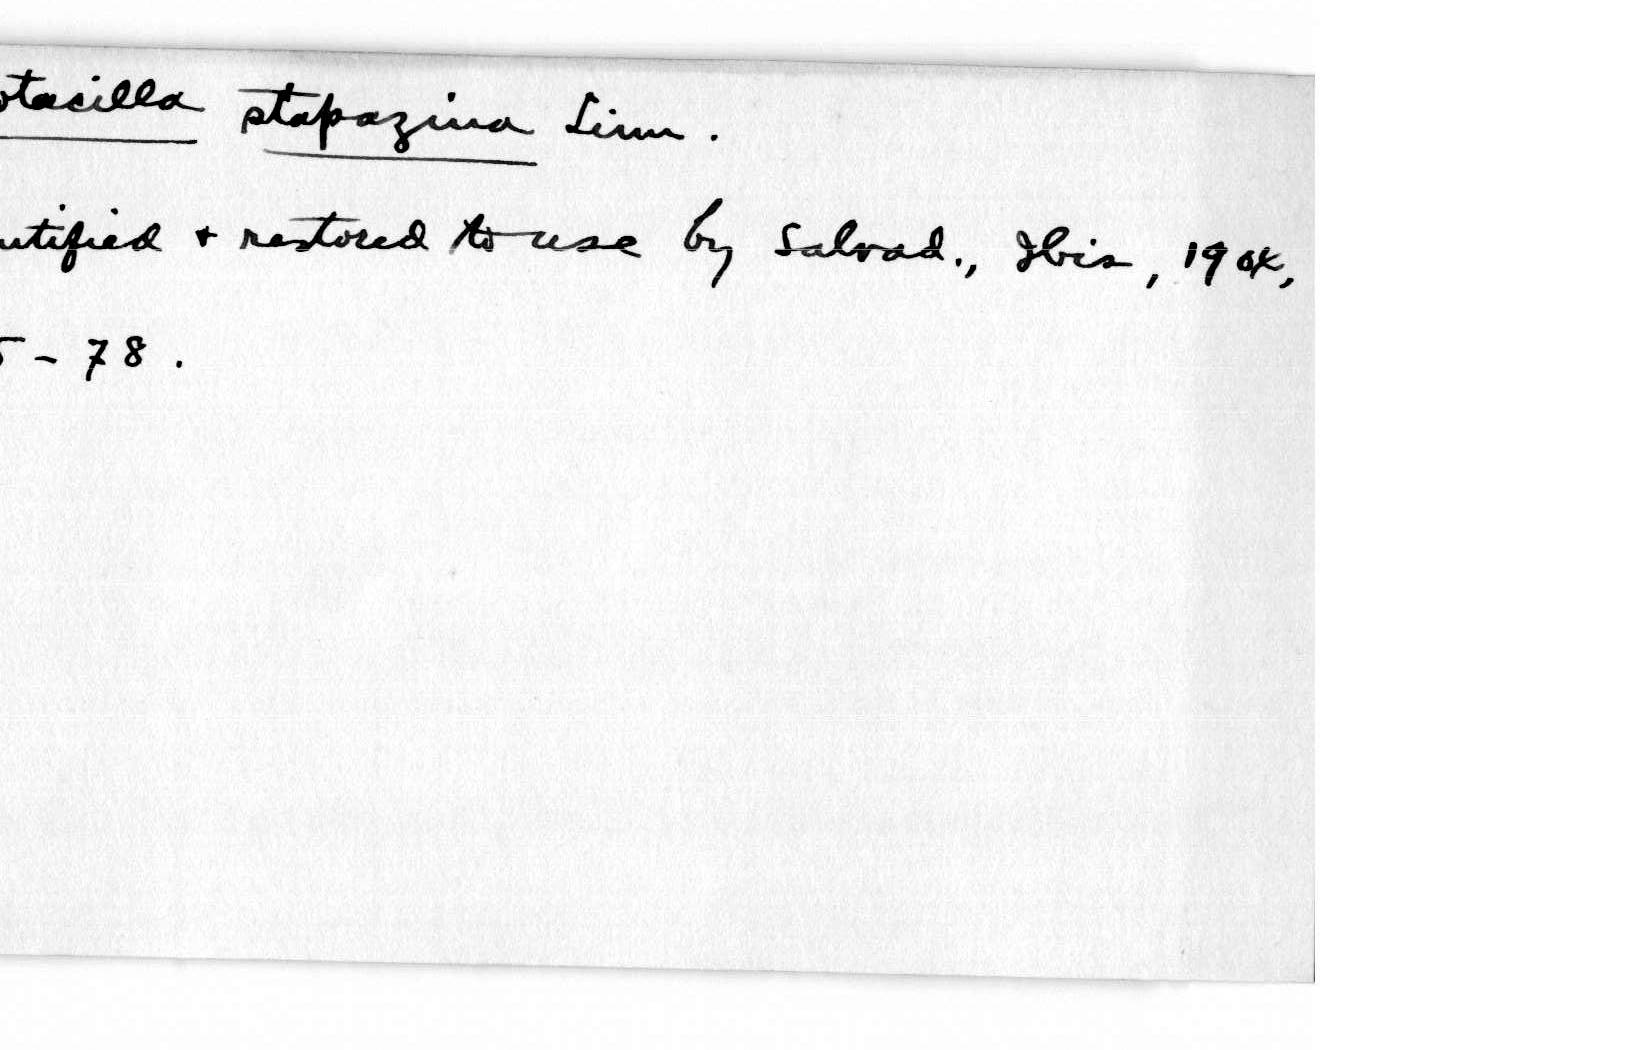 otacilla stapazina Linn.
ntified + restored to use by Salvad., Ibis, 1904,
5-78.